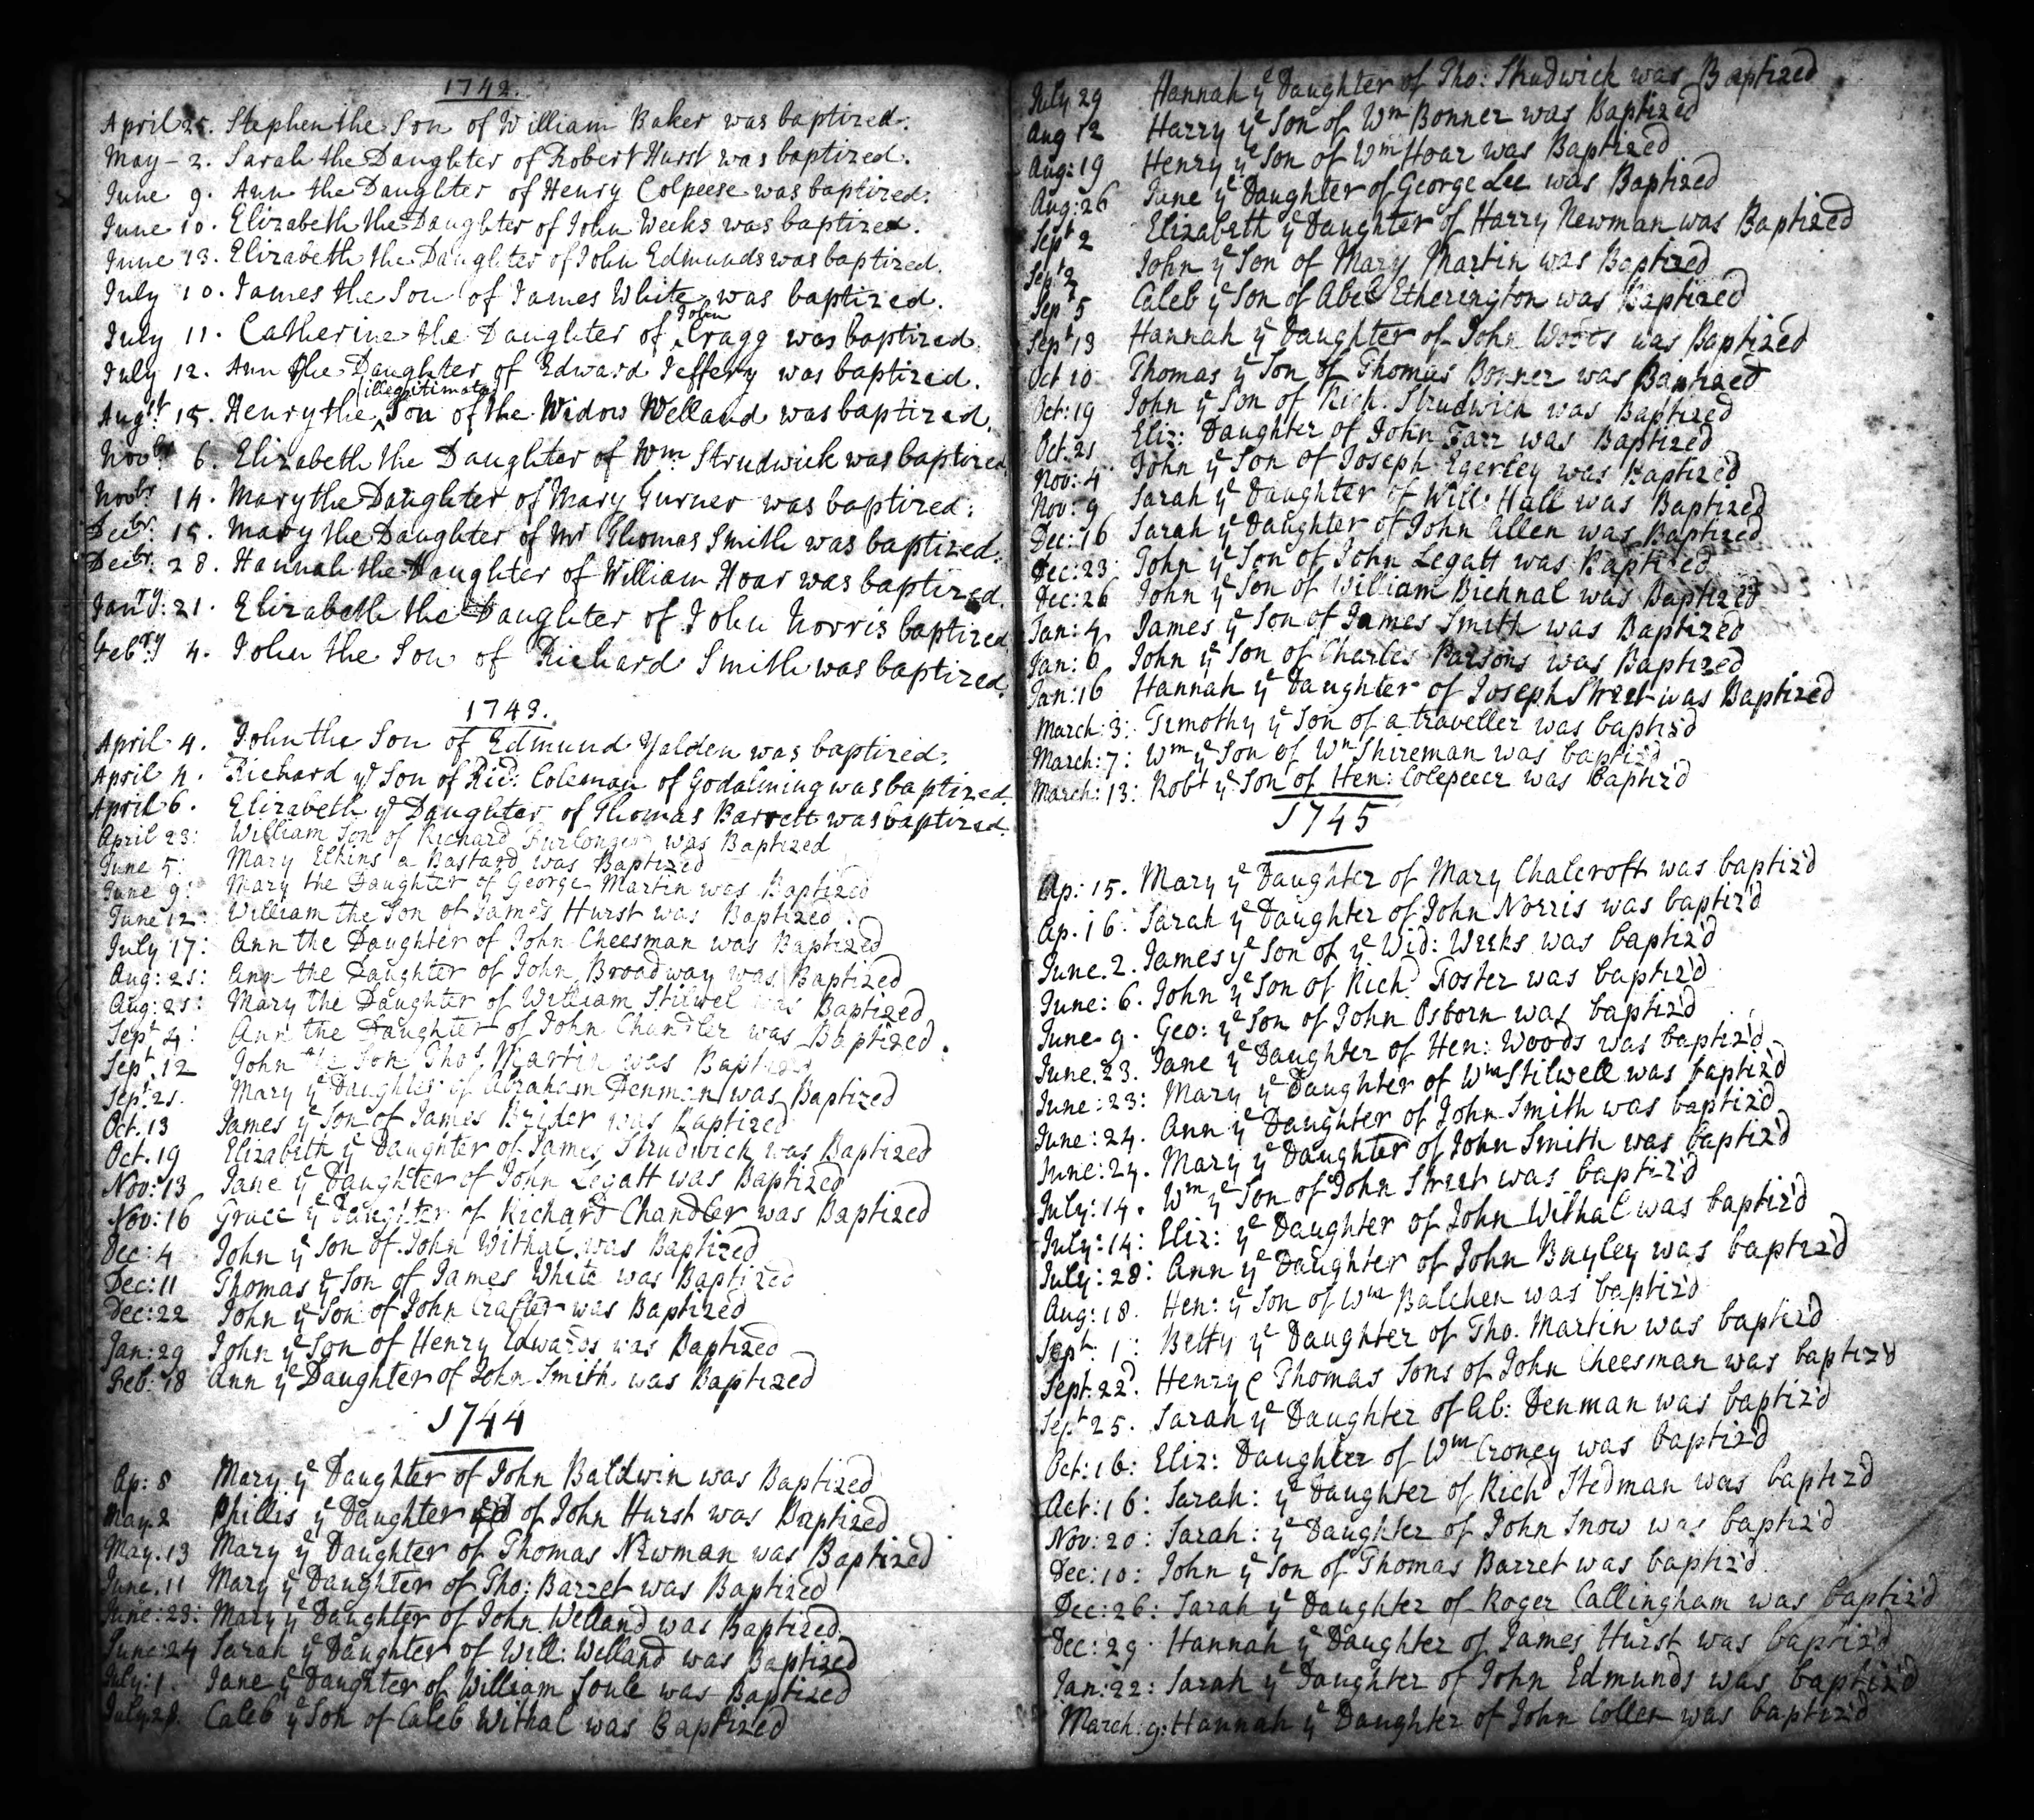 1742.
April 25. Stephen the Son of William Baker was baptized.
May - 2. Sarah the Daughter of Robert Hurst was baptized.
June 9. Ann the Daughter of Henry Colpeese was baptized.
June 10. Elizabeth the Daughter of John Weeks was baptized.
June 13. Elizabeth the Daughter of John Edmunds was baptized.
July 10. James the Son of James White was baptized.
July 11. Catherine the Daughter of John Cragg was baptized.
July 12. Ann the Daughter of Edward Jeffery was baptized.
Augst 15. Henry the illegitimate Son of the Widow Welland was baptized.
Novbr 6. Elizabeth the Daughter of Wm Strudwick was baptized
Novbr 14. Mary the Daughter of Mary Gurner was baptized:
Decbr. 15. Mary the Daughter of Mr Thomas Smith was baptized.
Decbr. 28. Hannah the Daughter of William Hoar was baptized.
Janry: 21. Elizabeth the Daughter of John Norris baptized
Febry 4. John the Son of Richard Smith was baptized.
1743.
April 4. John the Son of Edmund Yalden was baptized.
April 4. Richard ye Son of Ric: Coleman of Godalming was baptized.
April 6. Elizabeth ye Daughter of Thomas Barrett was baptized.
April 23: William Son of Richard Furlonger was Baptized
June 5: Mary Elkins a Bastard was Baptized
June 9: Mary the Daughter of George Martin was Baptized
June 12: William the Son of James Hurst was Baptized.
July 17: Ann the Daughter of John Cheesman was Baptized
Aug: 21: Ann the Daughter of John Broadway was Baptized
Aug: 21: Mary the Daughter of William Stilwel was Baptized
Sept 4: Ann the Daughter of John Chandler was Baptized.
Sept. 12 John the Son Thos Martin was Baptized
Sept: 21. Mary ye Daughter of Abraham Denman was Baptized
Oct. 13 James ye Son of James Brider was Baptized
Oct. 19 Elizabeth ye Daughter of James Strudwick was Baptized
Nov: 13 Jane ye Daughter of John Legatt was Baptized
Nov: 16 Grace ye Daughter of Richard Chandler was Baptized
Dec: 4 John ye Son of John Withal was Baptized
Dec: 11 Thomas ye Son of James White was Baptized
Dec: 22 John ye Son of John Crafter was Baptized
Jan: 29 John ye Son of Henry Edwards was Baptized
Feb: 18 Ann ye Daughter of John Smith was Baptized
1744
Ap: 8 Mary ye Daughter of John Baldwin was Baptized
May. 2 Phillis ye Daughter of John Hurst was Baptized
May. 13 Mary ye Daughter of Thomas Newman was Baptized
June. 11 Mary ye Daughter of Tho: Barret was Baptized
June: 23: Mary ye Daughter of John Welland was Baptized
June: 24 Sarah ye Daughter of Will: Welland was Baptized
July: 1. Jane ye Daughter of William Soule was Baptized
July. 28. Caleb ye Son of Caleb Withal was Baptized
July 29 Hannah ye Daughter of Tho: Studwick was Baptized
Aug 12 Harry ye Son of Wm Bonner was Baptized
Aug: 19 Henry ye Son of Wm Hoar was Baptized
Aug: 26 Jane ye Daughter of George Lee was Baptized
Sept 2 Elizabeth ye Daughter of Harry Newman was Baptized
Sept 2 John ye Son of Mary Martin was Baptized
Sept 5 Caleb ye Son of Abel Etherington was Baptized
Sept 13 Hannah ye Daughter of John Woods was Baptized
Oct 10 Thomas ye Son of Thomas Bonner was Baptized
Oct: 19 John ye Son of Rich. Strudwick was Baptized
Oct. 21 Eliz: Daughter of John Farr was Baptized
Nov: 4 John ye Son of Joseph Egerley was Baptized
Nov: 9 Sarah ye Daughter of Will: Hall was Baptized
Dec: 16 Sarah ye Daughter of John Allen was Baptized
Dec: 23 John ye Son of John Legatt was Baptized
Dec: 26 John ye Son of William Bicknal was Baptized
Jan: 4. James ye Son of James Smith was Baptized
Jan: 6 John ye Son of Charles Parsons was Baptized
Jan: 16 Hannah ye Daughter of Joseph Street was Baptized
March: 3: Timothy ye Son of a traveller was baptiz'd
March: 7: Wm ye Son of Wm Shireman was baptiz'd
March: 13: Robt ye Son of Hen: Colepeeer was baptiz'd
1745
Ap: 15. Mary ye Daughter of Mary Chalcroft was baptiz'd
Ap. 16. Sarah ye Daughter of John Norris was baptiz'd
June. 2. James ye Son of ye Wid: Weeks was baptiz'd
June: 6. John ye Son of Richd Foster was baptiz'd
June. 9. Geo: ye Son of John Osborn was baptiz'd
June. 23. Jane ye Daughter of Hen: Woods was baptiz'd
June: 23: Mary ye Daughter of Wm Stilwell was baptiz'd
June: 24. Ann ye Daughter of John Smith was baptiz'd
June: 24. Mary ye Daughter of John Smith was baptiz'd
July: 14. Wm ye Son of John Street was baptiz'd
July: 14: Eliz: ye Daughter of John Withal was baptiz'd
July: 28: Ann ye Daughter of John Bayley was baptiz'd
Aug: 18. Hen: ye Son of Wm Balchen was baptiz'd
Sept. 1: Betty ye Daughter of Tho. Martin was baptiz'd
Sept. 22d. Henry & Thomas Sons of John Cheesman was baptiz'd
Sept 25. Sarah ye Daughter of Ab: Denman was baptiz'd
Oct: 16: Eliz: Daughter of Wm Croney was baptiz'd
Oct: 16: Sarah: ye Daughter of Richd Stedman was baptiz'd
Nov: 20: Sarah: ye Daughter of John Snow was baptiz'd
Dec: 10: John ye Son of Thomas Barret was baptiz'd.
Dec: 26: Sarah ye Daughter of Roger Callingham was baptiz'd
Dec: 29. Hannah ye Daughter of James Hurst was baptiz'd
Jan: 22: Sarah ye Daughter of John Edmunds was baptiz'd
March: 9: Hannah ye Daughter of John Collen was baptiz'd